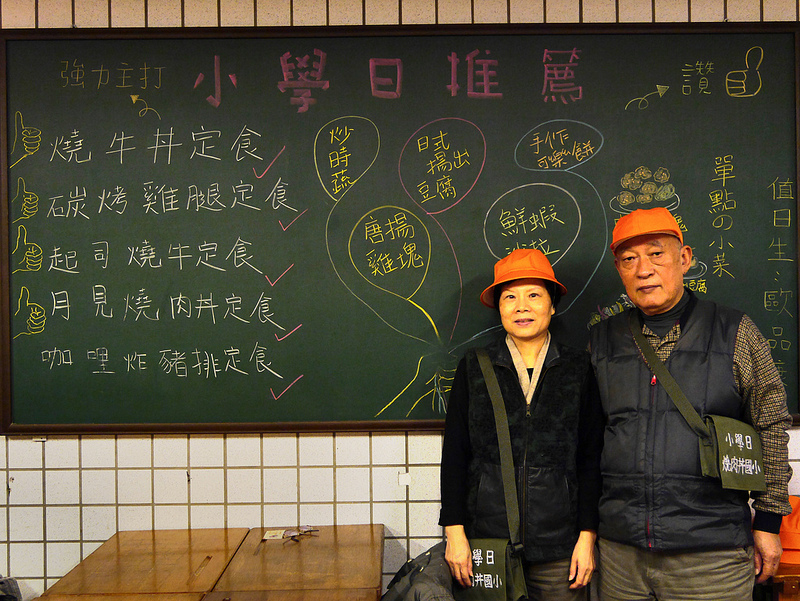 強力主打
小學日推薦
讚
燒牛丼定食
碳烤雞腿定食
起司燒牛定食
月見燒肉丼定食
咖哩炸豬排定食
炒時蔬
日式
揚出
豆腐
手作
可樂餅
唐揚
雞塊
鮮蝦
沙拉
單點の小菜
值日生：歐品
小學日
燒肉丼國小
學日
丼國小